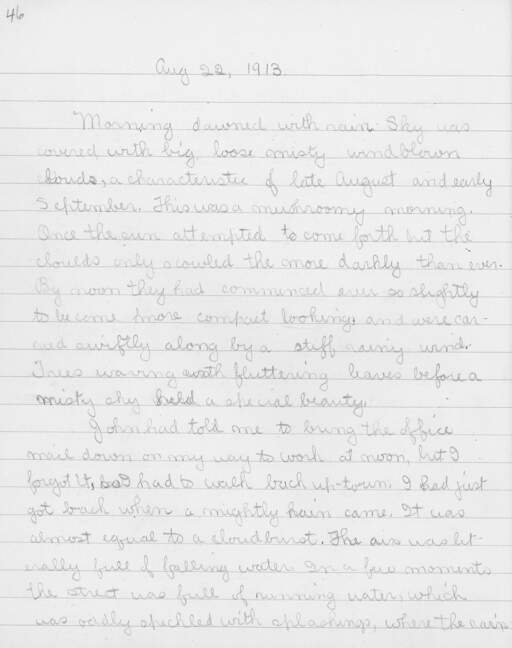 46
Aug 22, 1913.
Morning dawned with rain. Sky was
covered with big, loose misty windblown
clouds, a characteristic of late August and early
September. This was a mushroomy morning.
Once the sun attempted to come forth but the
clouds only scowled the more darkly than ever.
By noon they had commenced ever so slightly
to become more compact looking, and were car-
ried swiftly along by a stiff rainy wind.
Trees waving with fluttering leaves before a
misty sky held a special beauty.
John had told me to bring the office
mail down on my way to work at noon, but I
forgot it, so I had to walk back up-town. I had just
got back when a mightly rain came. It was
almost equal to a cloudburst. The air was lit-
erally full of falling water. In a few moments
the street was full of running water, which
was oddly speckled with splashings, where the rain